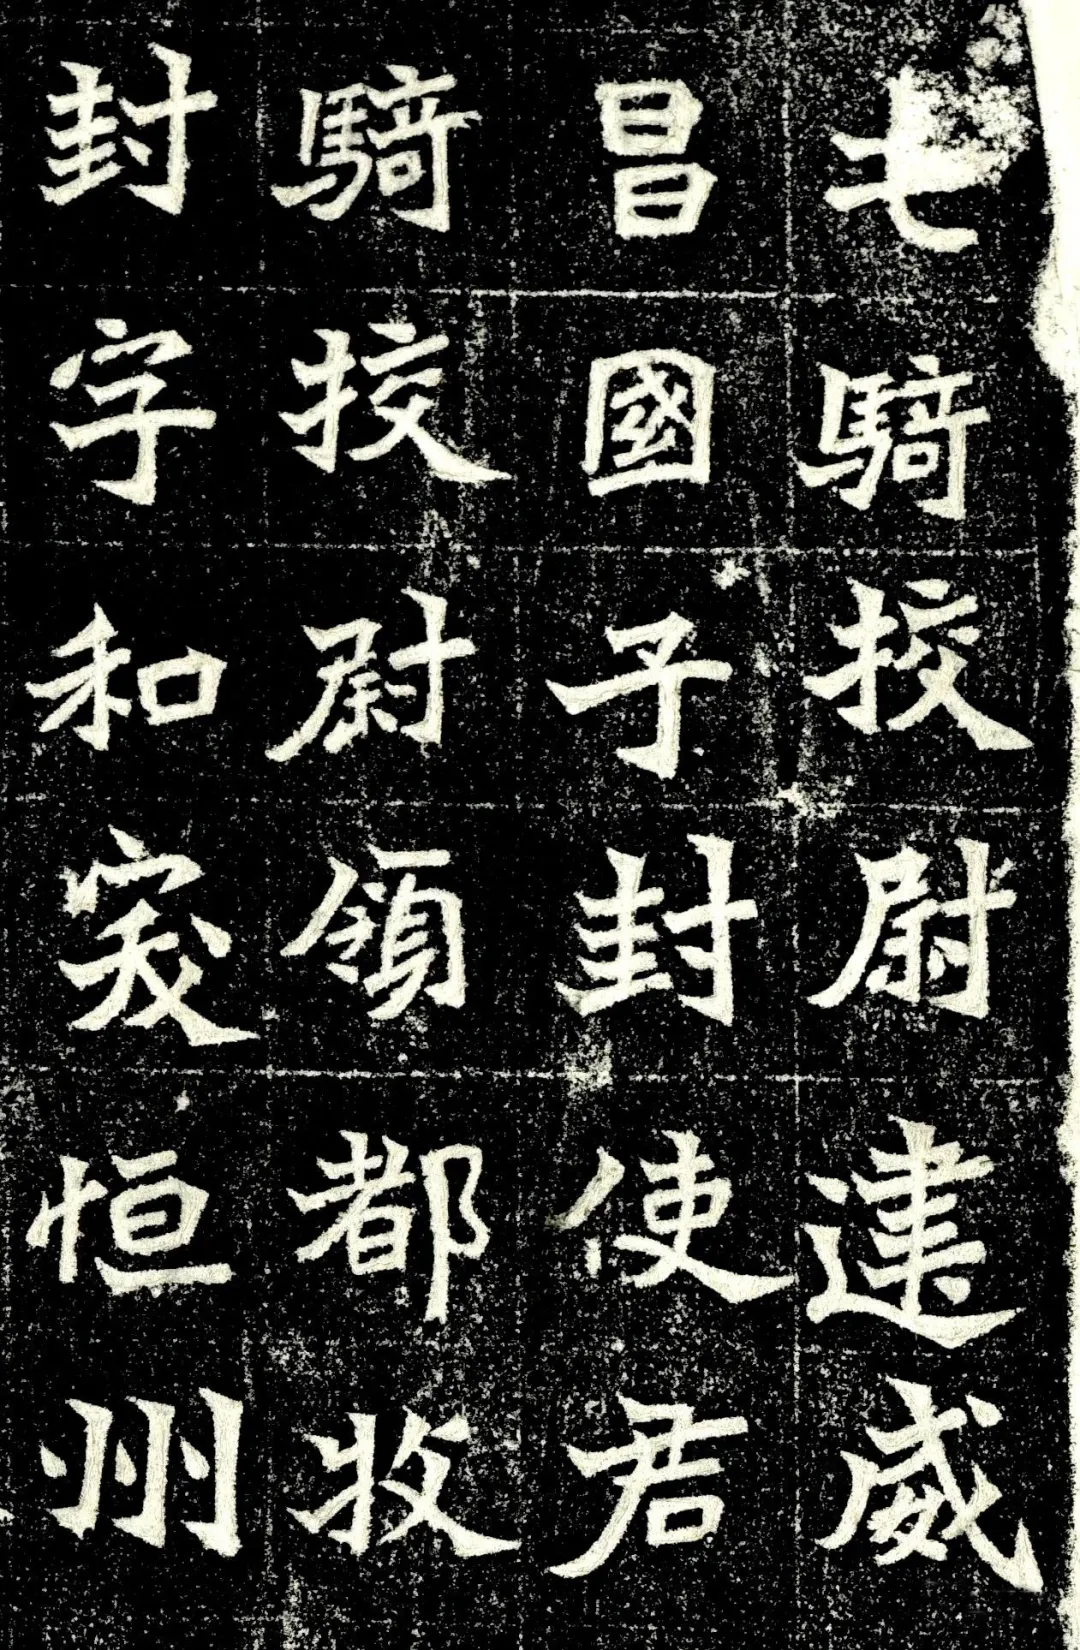 屯騎挍尉建威
昌國子封使君
騎挍尉領都牧
封字和突恒州